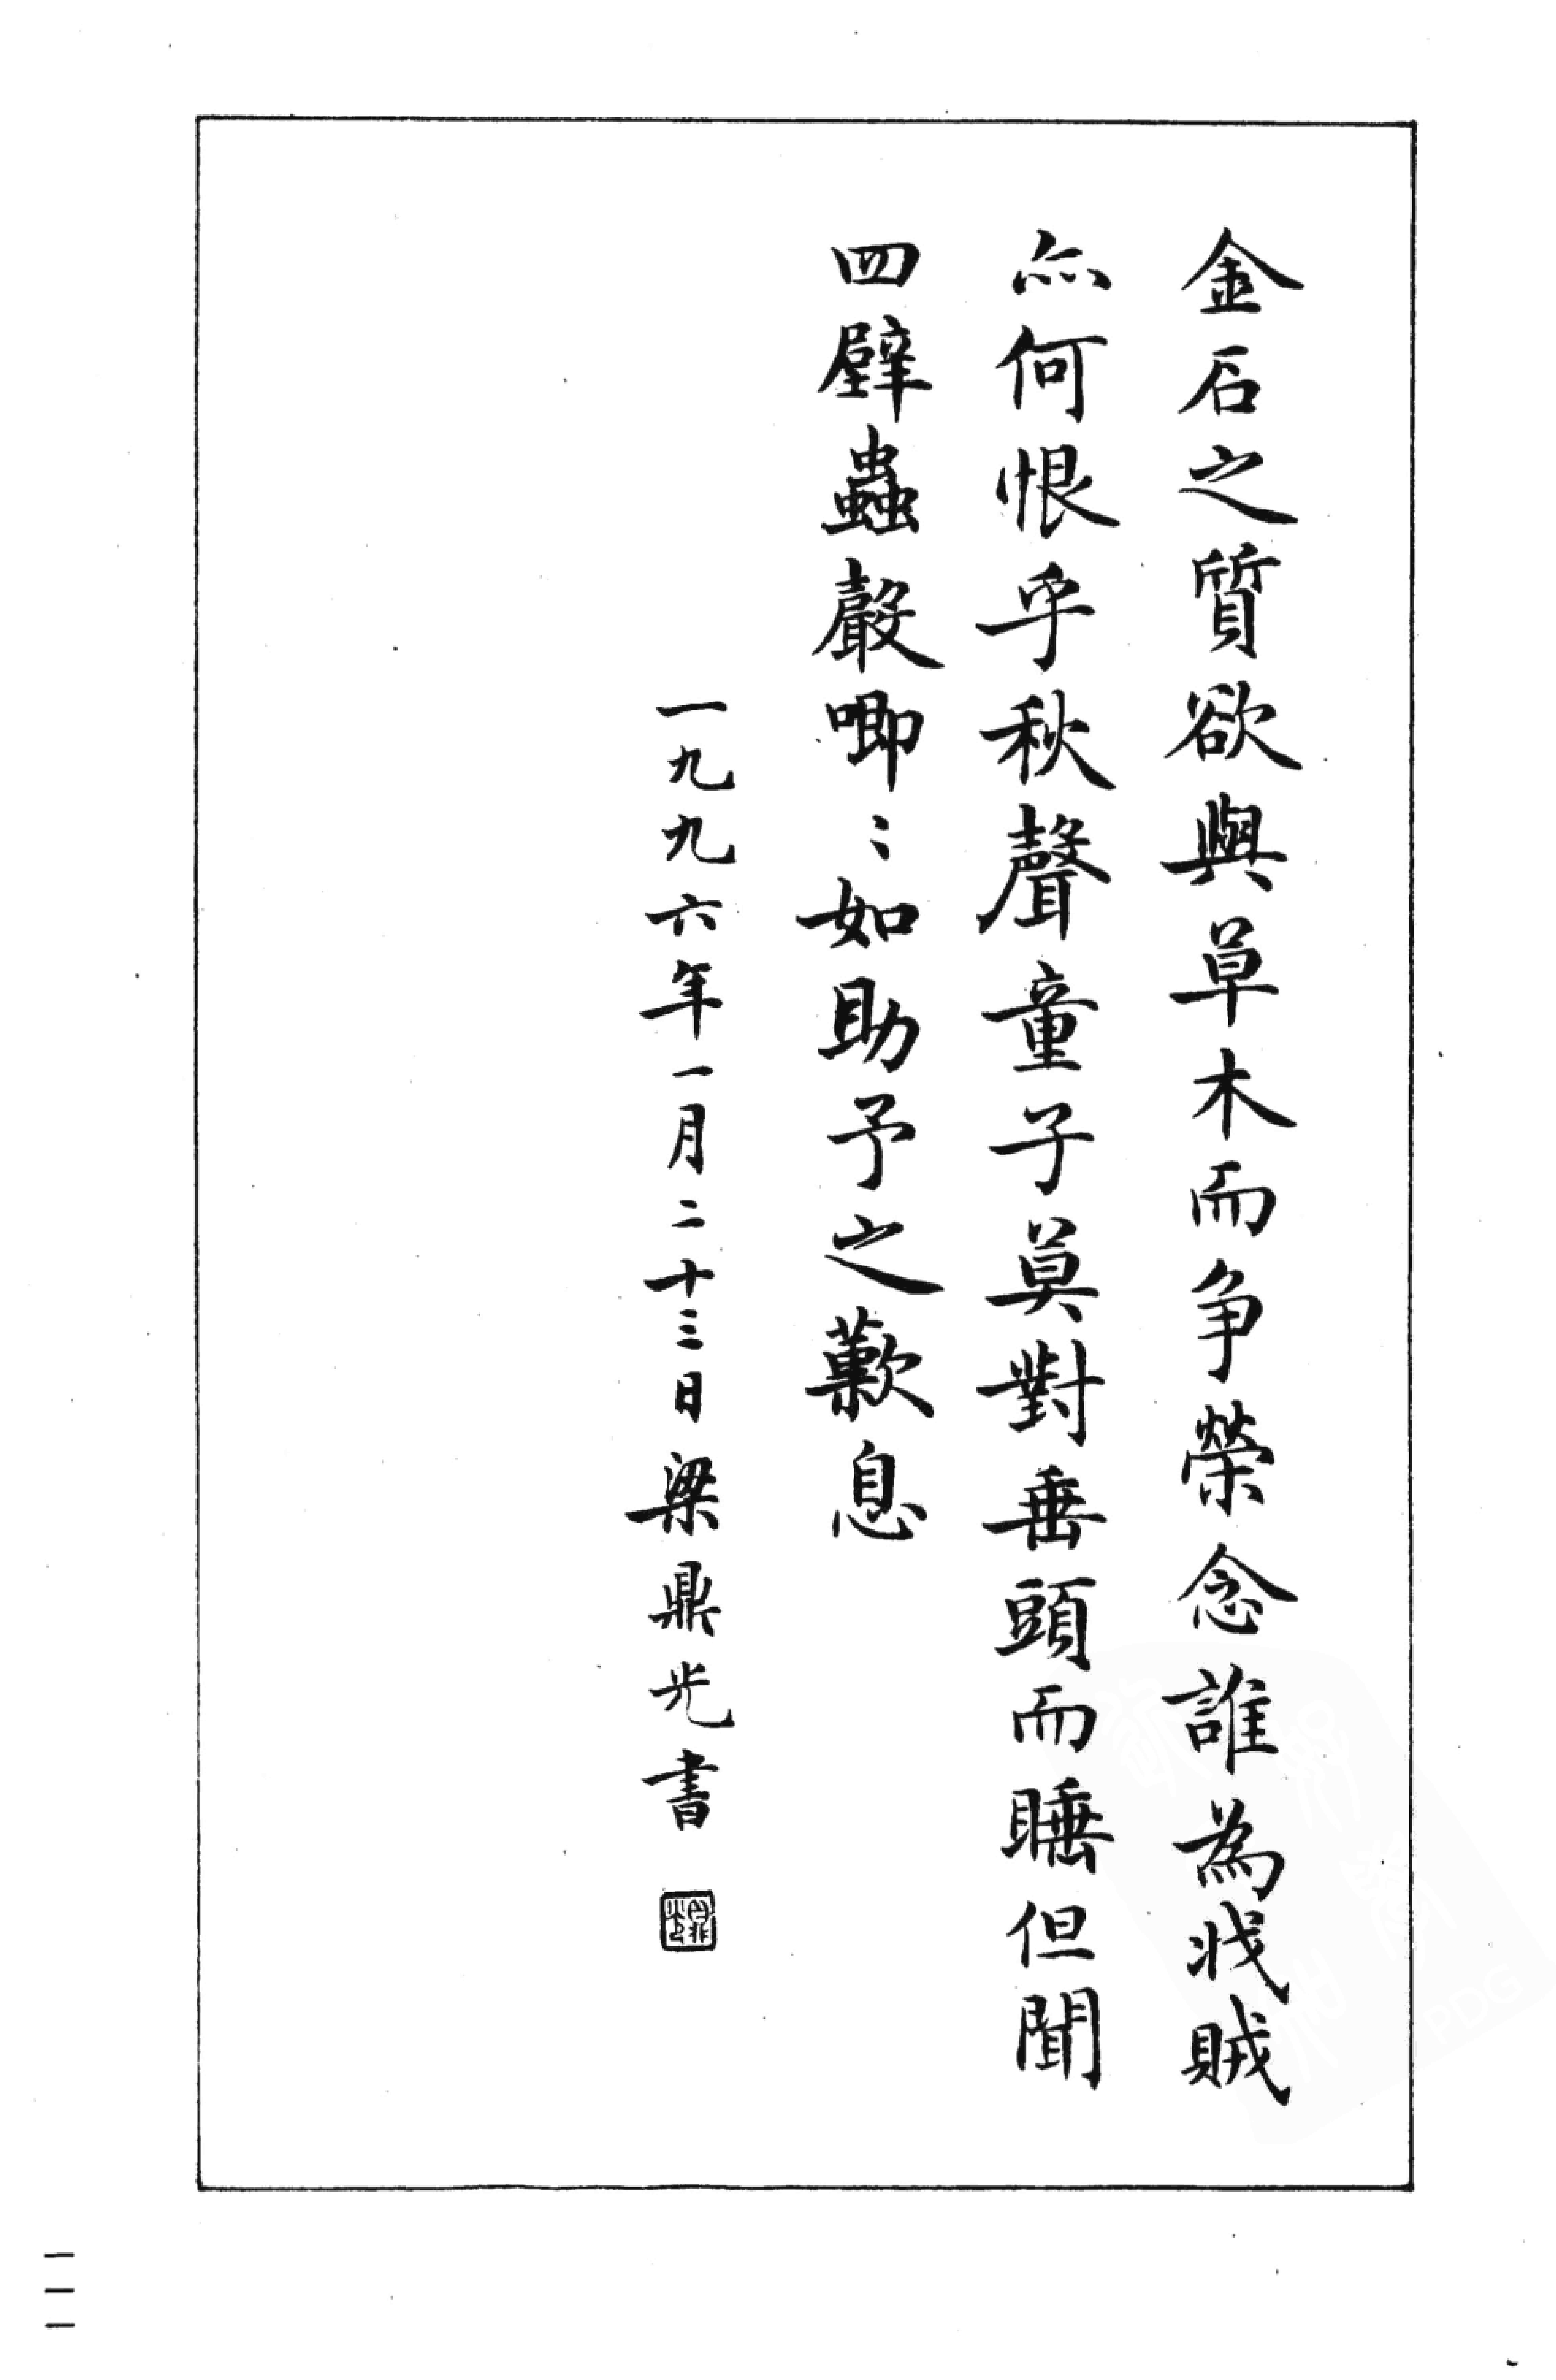 金石之質欲與草木而争榮念誰為戕賊
亦何恨乎秋聲童子莫對垂頭而睡但聞
四壁蟲聲唧〻如助予之歎息
一九九六年一月二十三日梁鼎光書
鼎光
一一一